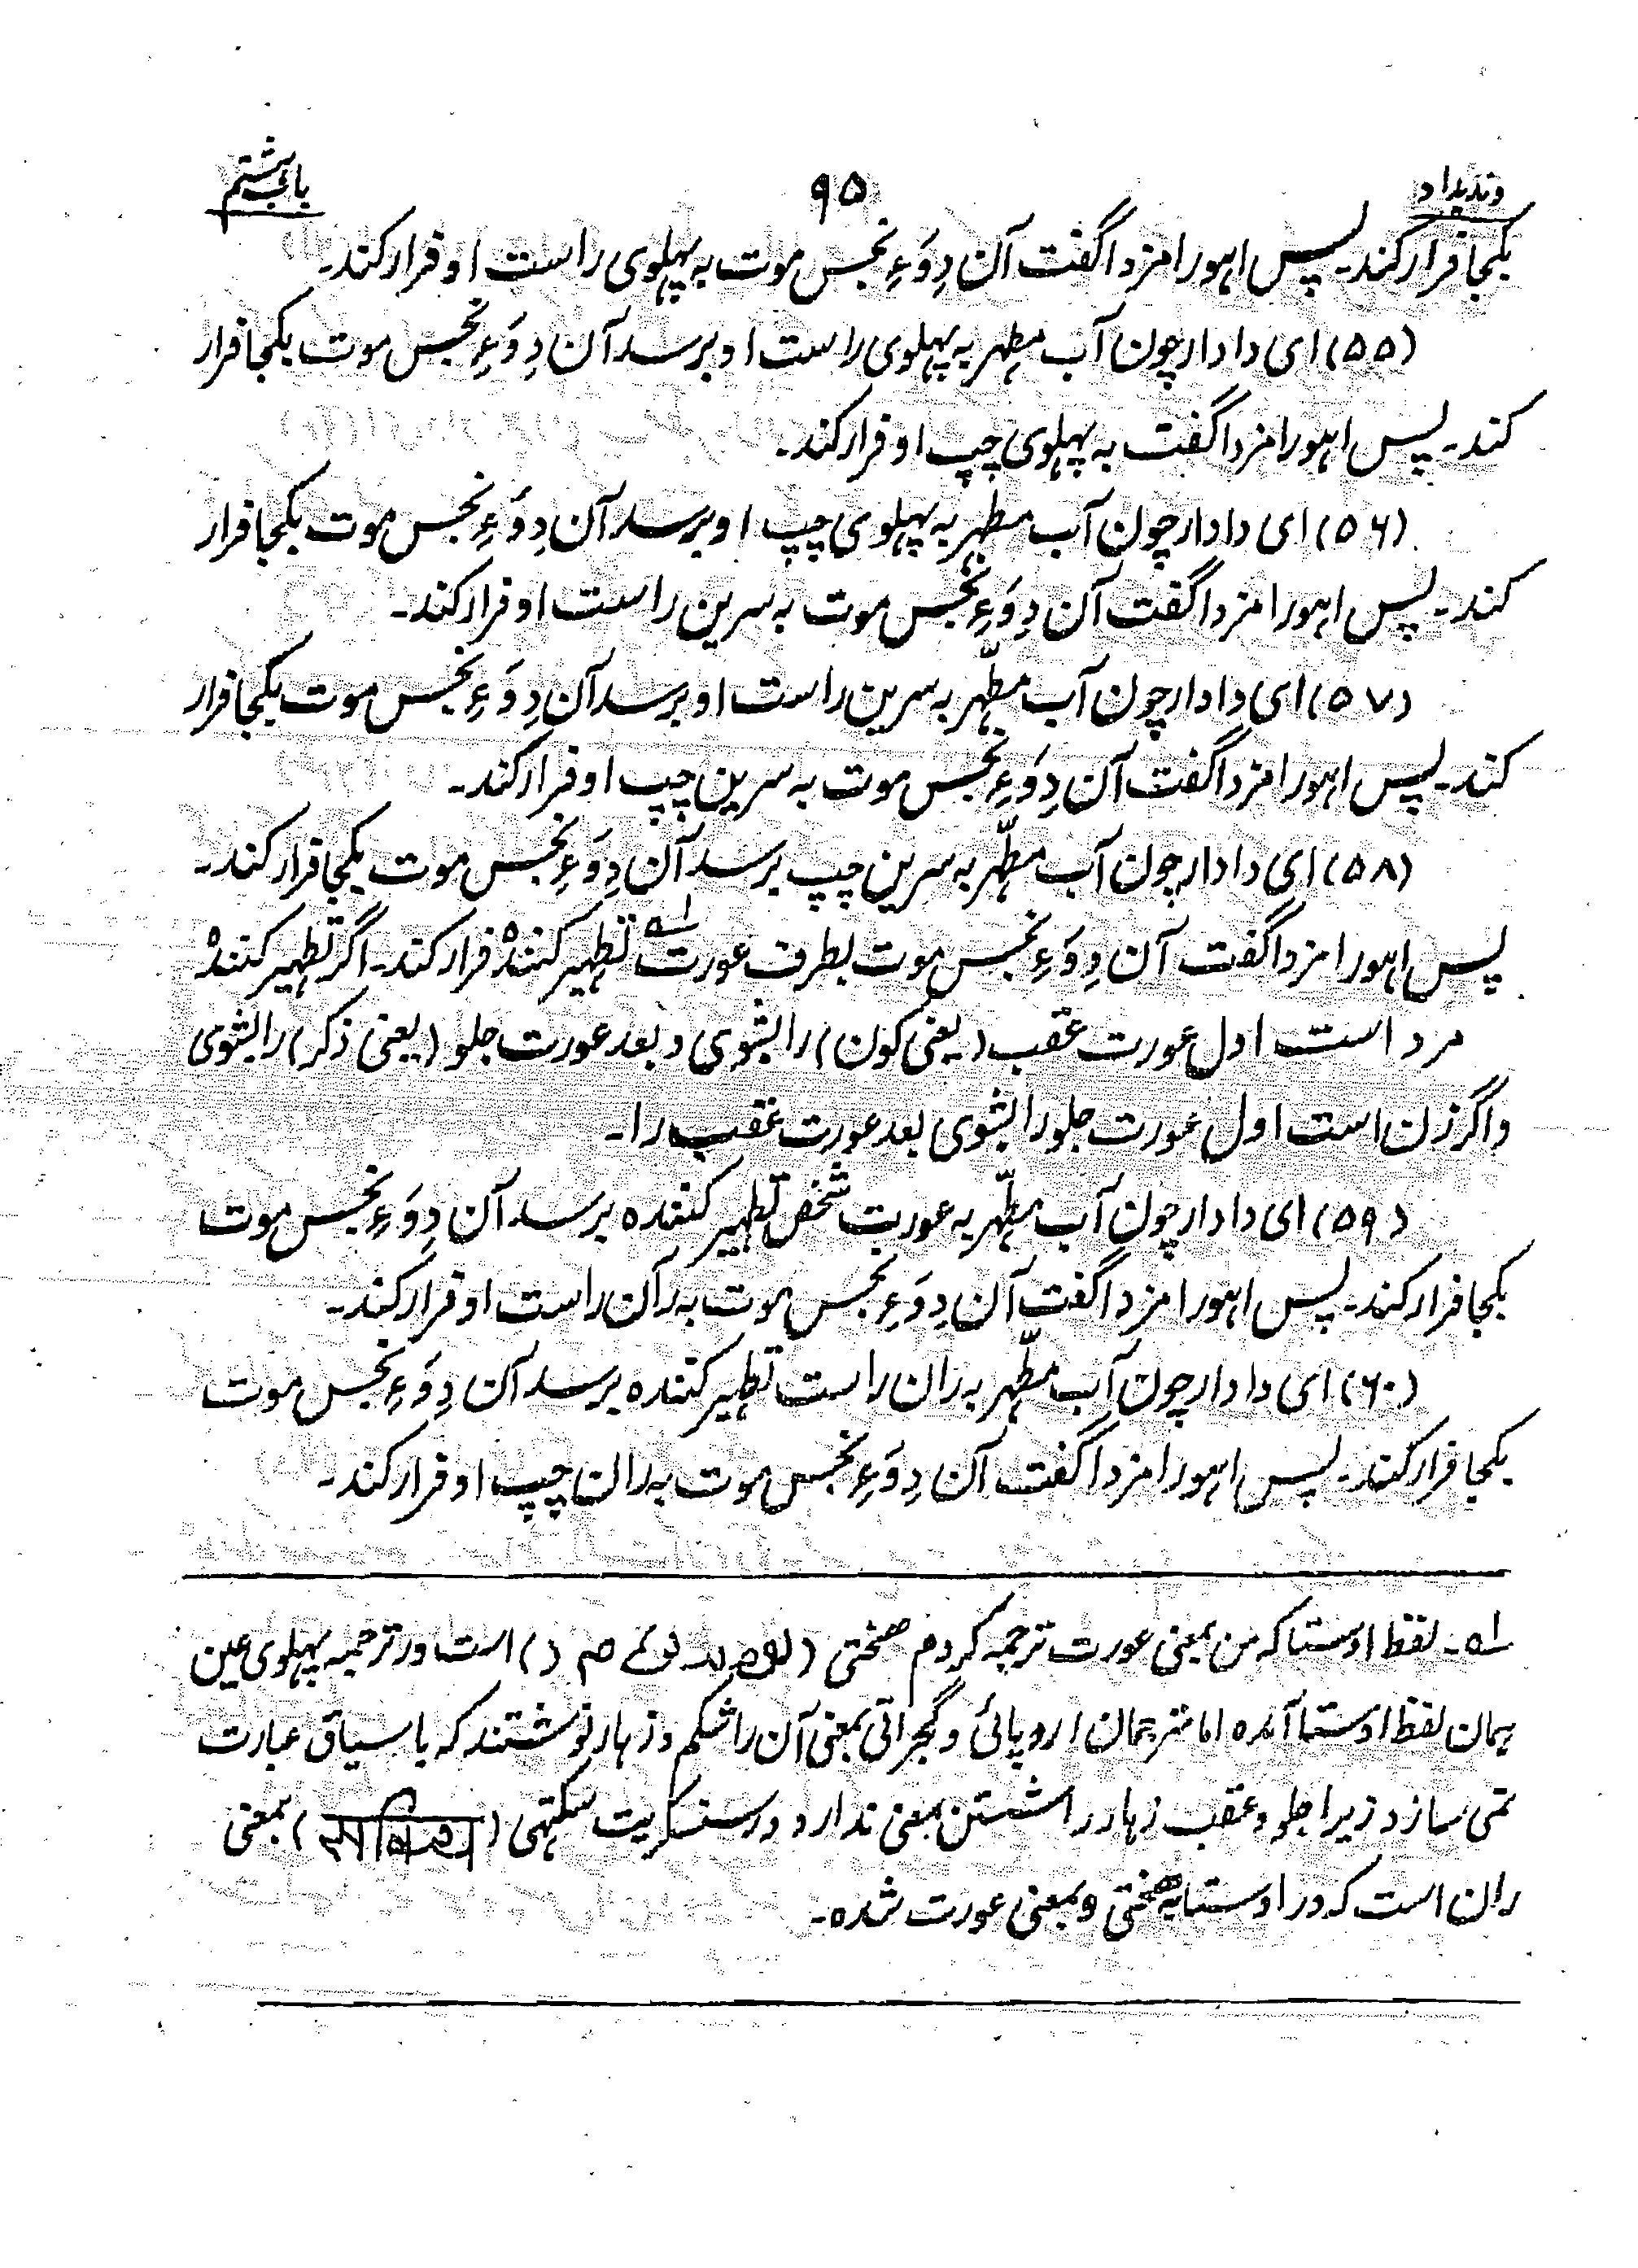 وندیداد ۹۵ باب هشتم
بکجا فرار کند۔ پس اهورا مزدا گفت آن دِوَءِ نجس موت به پهلوی راست او فرار کند۔
(۵۵) ای دادار چون آب مطهر به پهلوی راست او برسد آن دِوَءِ نجس موت بکجا فرار
کند۔ پس اهورا مزدا گفت به پهلوی چپ او فرار کند۔
(۵۶) ای دادار چون آب مطهر به پهلوی چپ او برسد آن دِوَءِ نجس موت بکجا فرار
کند۔ پس اهورا مزدا گفت آن دِوَءِ نجس موت به سرین راست او فرار کند۔
(۵۷) ای دادار چون آب مطهّر به سرین راست او برسد آن دِوَءِ نجس موت بکجا فرار
کند۔ پس اهورا مزدا گفت آن دِوَءِ نجس موت به سرین چپ او فرار کند۔
(۵۸) ای دادار چون آب مطهّر به سرین چپ برسد آن دِوَءِ نجس موت بکجا فرار کند۔
پس اهورا مزدا گفت آن دِوَءِ نجس موت بطرف عورت ۱؎ تطهیر کننده فرار کند۔ اگر تطهیر کننده
مرد است اول عورت عقب (یعنی کون) را بشوی و بعد عورت جلو (یعنی ذکر) را بشوی
و اگر زن است اول عورت جلو را بشوی بعد عورت عقب را۔
(۵۹) ای دادار چون آب مطهّر به عورت شخص تطهیر کننده برسد آن دِوَءِ نجس موت
بکجا فرار کند۔ پس اهورا مزدا گفت آن دِوَءِ نجس موت به ران راست او فرار کند۔
(۶۰) ای دادار چون آب مطهّر به ران راست تطهیر کننده برسد آن دِوَءِ نجس موت
بکجا فرار کند۔ پس اهورا مزدا گفت آن دِوَءِ نجس موت به ران چپ او فرار کند۔
۱؎۔ لفظ اوستا که من بمعنی عورت ترجمه کردم هختی است و در ترجمه پهلوی عین
همان لفظ اوستا آمده اما مترجمان اروپائی و گجراتی بمعنی آن را شکم و زهار نوشتند که با سیاق عبارت
نمی سازد زیرا جلو و عقب زهار را شستن معنی ندارد در سنسکریت سکتهی (सक्थि) بمعنی
ران است که در اوستا به هختی و بمعنی عورت شده۔